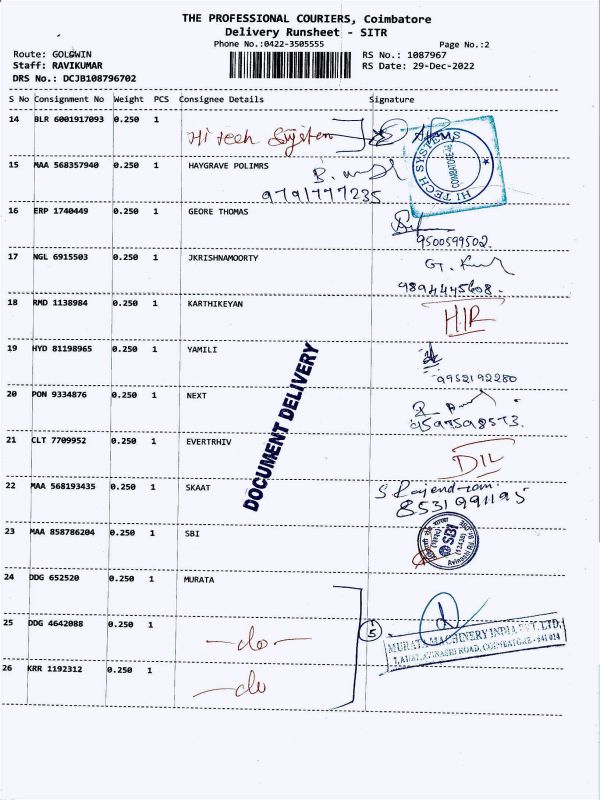 THE PROFESSIONAL COURIERS, Coimbatore
Delivery Runsheet - SITR
Phone No.:0422-3505555 Page No.:2
Route: GOLDWIN RS No.: 1087967
Staff: RAVIKUMAR RS Date: 29-Dec-2022
DRS No.: DCJB108796702
S No Consignment No Weight PCS Consignee Details Signature
14 BLR 6001917093 0.250 1 Hi tech System
HI TECH SYSTEMS COIMBATORE
15 MAA 568357940 0.250 1 HAYGRAVE POLIMRS
9791777235
16 ERP 1740449 0.250 1 GEORE THOMAS
9500599502
17 NGL 6915503 0.250 1 JKRISHNAMOORTY
9894445608.
18 RMD 1138984 0.250 1 KARTHIKEYAN H.I.R
19 HYD 81198965 0.250 1 YAMILI
9952192280
20 PON 9334876 0.250 1 NEXT
21 CLT 7709952 0.250 1 EVERTRHIV DIL
22 MAA 568193435 0.250 1 SKAAT S Rajendran
8531991195
23 MAA 858786204 0.250 1 SBI SBI
24 DDG 652520 0.250 1 MURATA
25 DDG 4642088 0.250 1 -do- 5
MURATA MACHINERY INDIA PVT. LTD.
AVINASHI ROAD, COIMBATORE - 641 014
26 KRR 1192312 0.250 1 -do
DOCUMENT DELIVERY